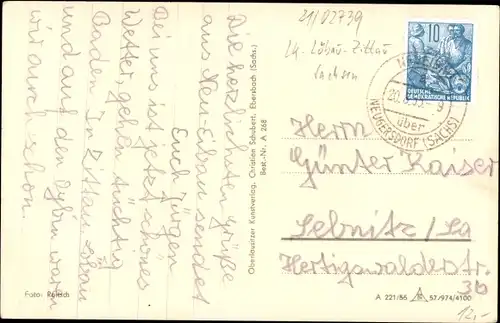 Die herzlichsten Grüße
aus Neu-Eibau sendet
Euch Jürgen
Bei uns ist jetzt schönes
Wetter, gehen tüchtig
Baden. In Zittau, Löbau
und auf den Oybin waren
wir auch schon.
Foto: Rolisch
Oberlausitzer Kunstverlag, Christian Schubert, Ebersbach (Sachs.)
Best.-Nr. A 268
21/02739
Löbau-Zittau
Sachsen
10
DEUTSCHE
DEMOKRATISCHE REPUBLIK
über
NEUGERSDORF (SACHS)
Herrn
Günter Kaiser
Sebnitz/Sa
Hertigswalderstr.
3b
A 221/56 57/974/4100
12,-